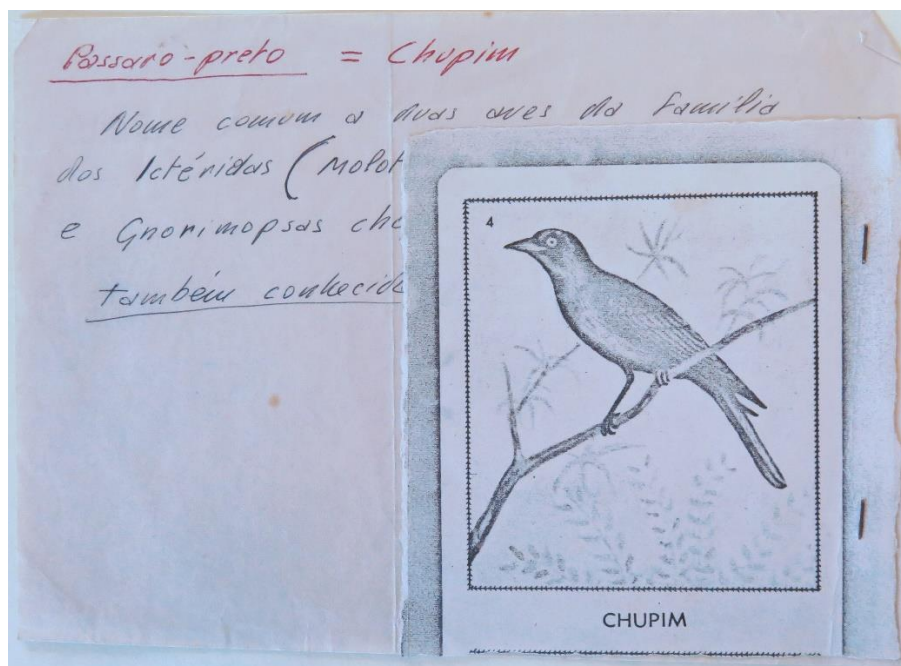 Pássaro-preto = Chupim
Nome comum a duas aves da família
dos Ictéridas (Molot
e Gnorimopsas cho
também conhecida
4
CHUPIM